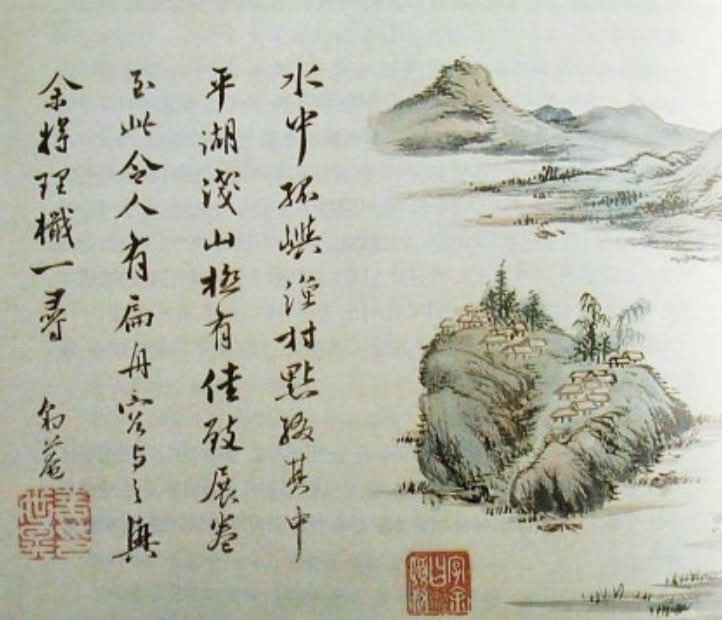 水中孤嶼漁村點綴其中
平湖淺山極有佳致展卷
至此令人有扁舟容与之興
余將理檝一尋